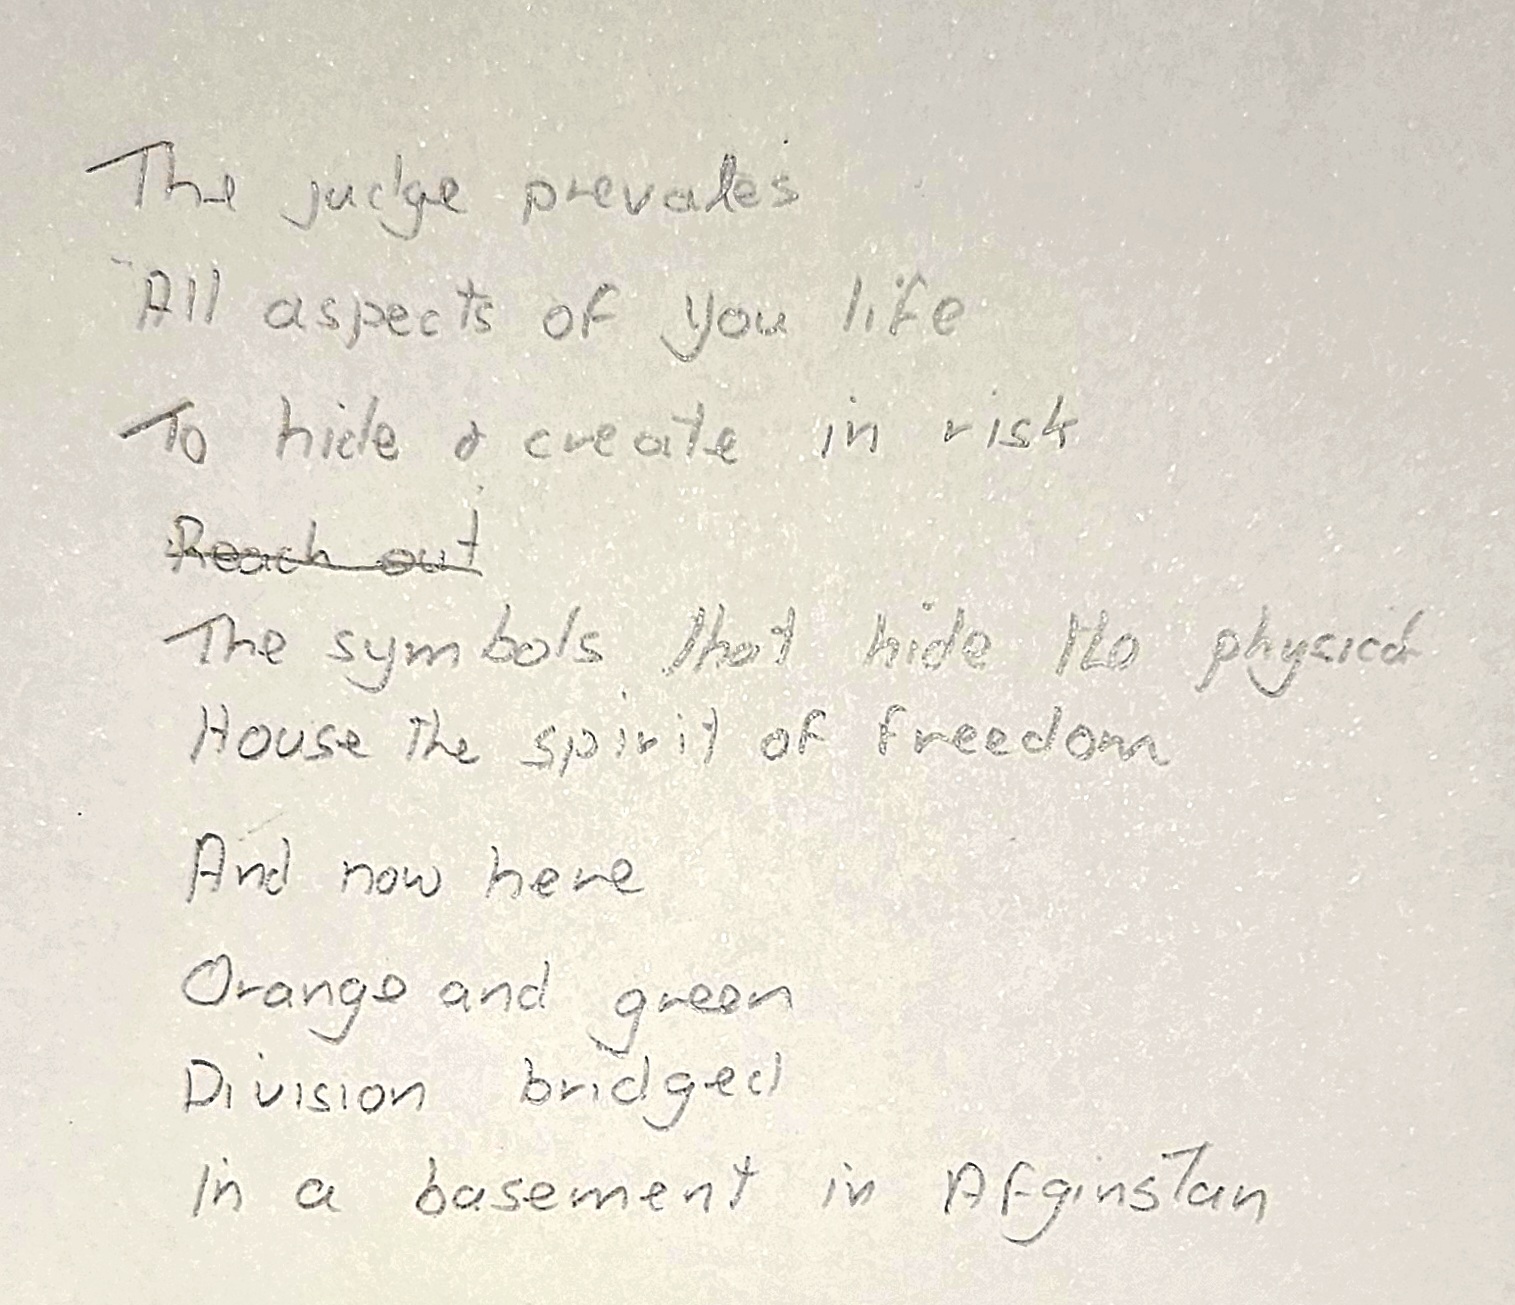 The judge prevales
All aspects of you life
To hide & create in risk
Reach out
The symbols that hide the physical
House the spirit of freedom
And now here
Orange and green
Division bridged
In a basement in Afginstan